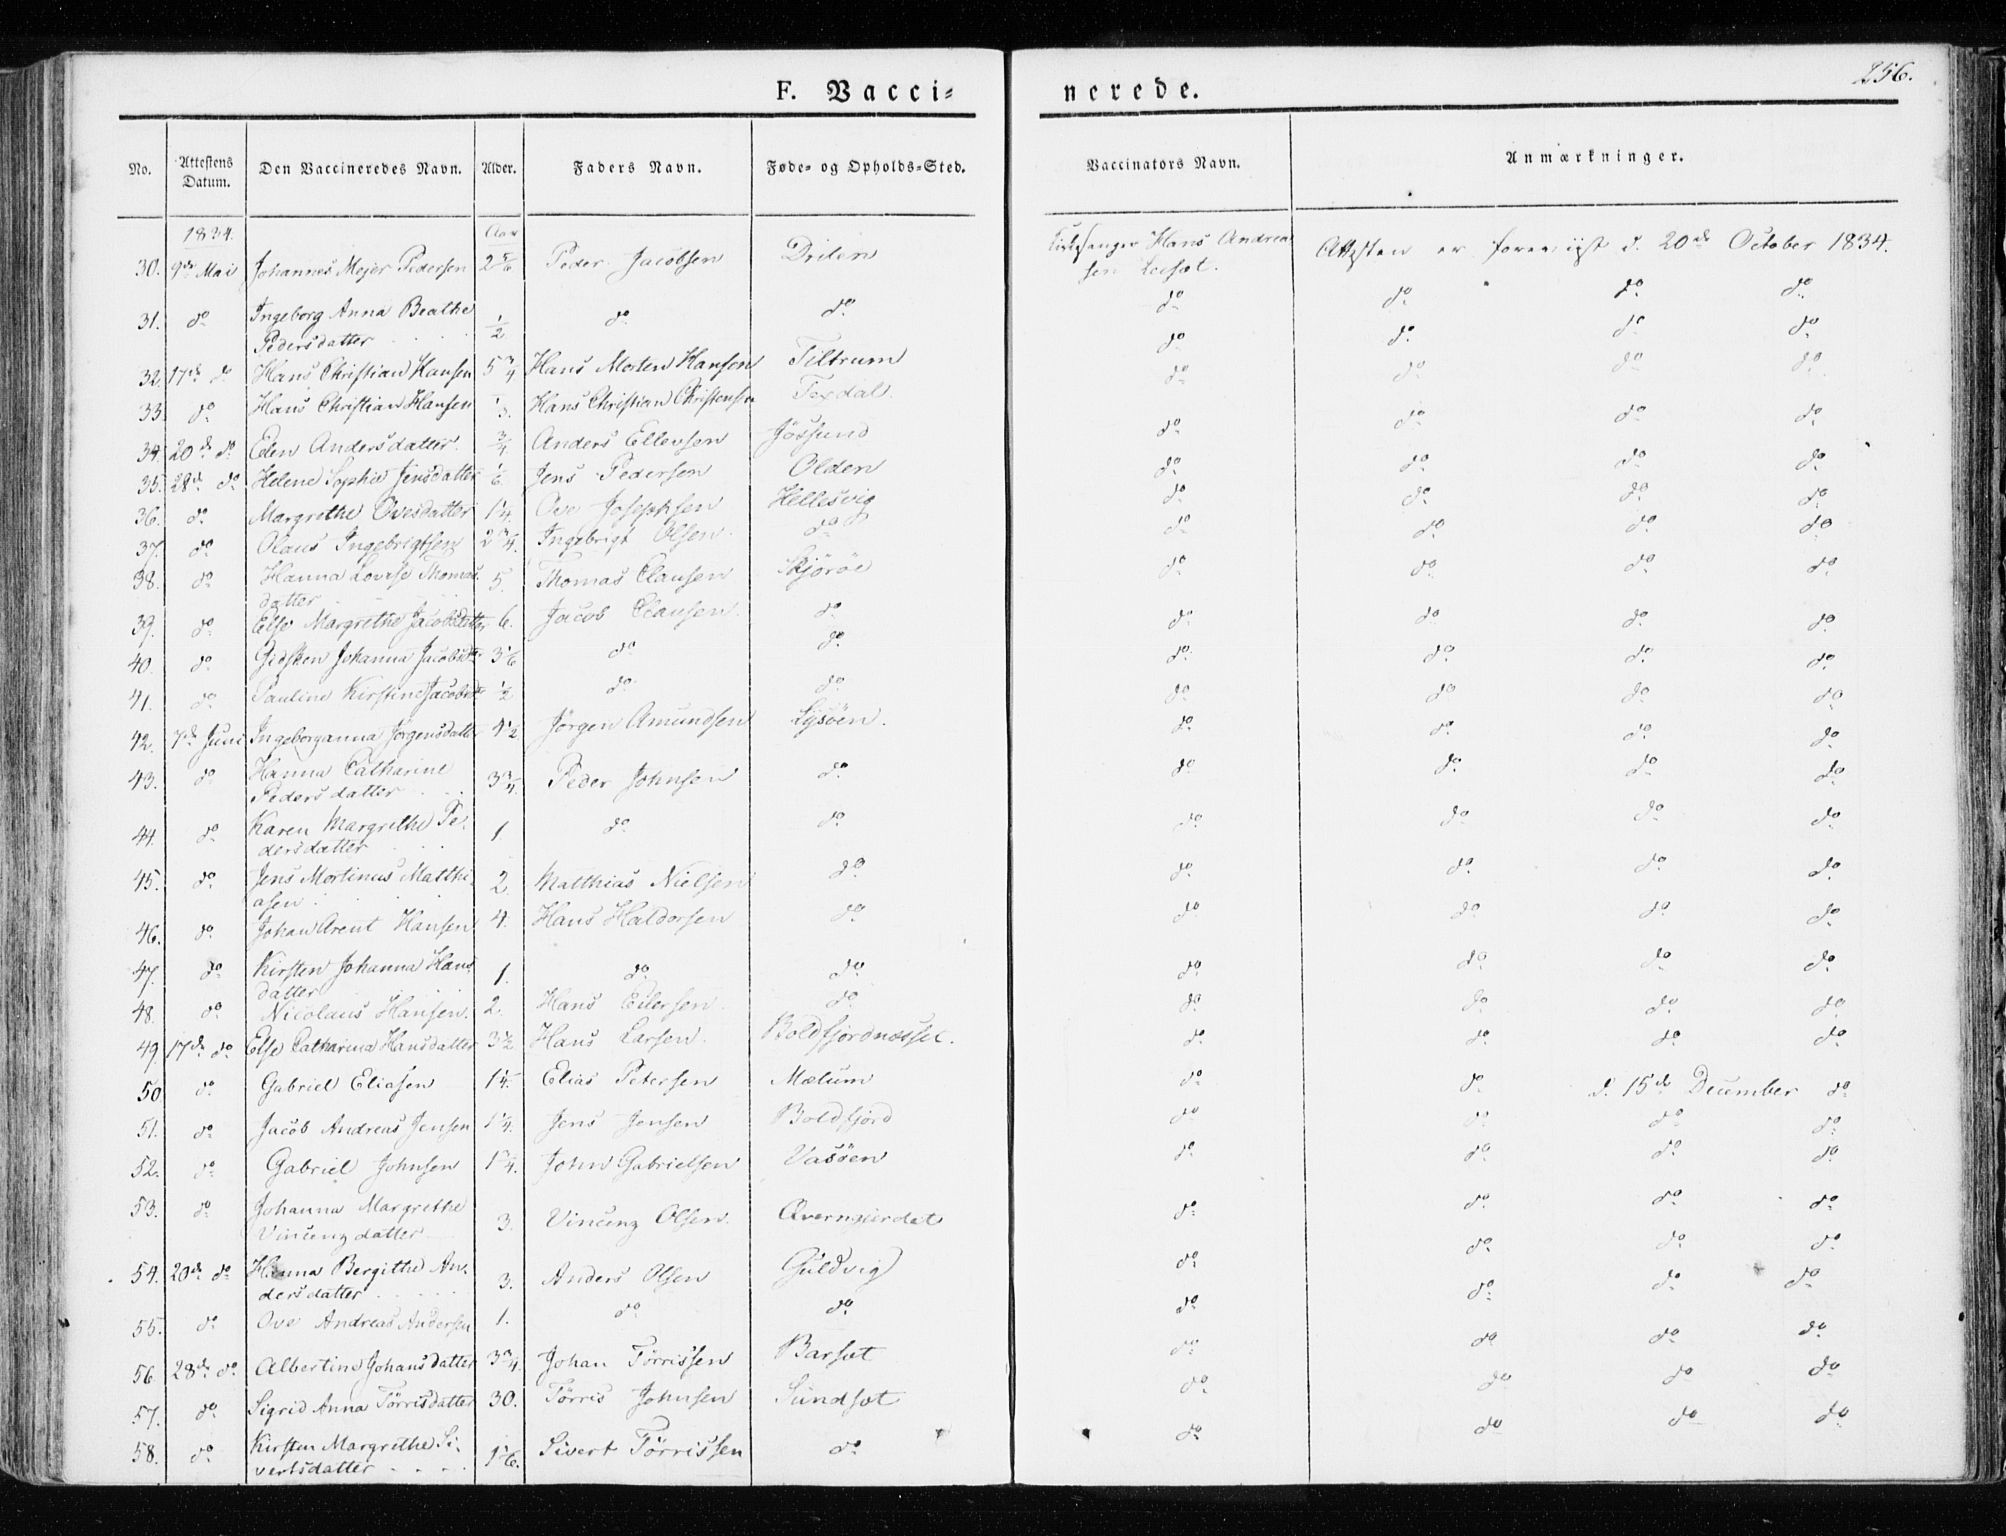 256.
F. Vacci= nerede.
No. Attestens Datum. Den Vaccineredes Navn. Alder. Faders Navn. Føde= og Opholds=Sted. Vaccinators Navn. Anmærkninger.
1834. Aar
30. 9de Mai Johannes Mejer Pedersen 2 5/6 Peder Jacobsen Drilen Kirkesanger Hans Andrea Attesten er foreviist d. 20de October 1834.
sen
31. do Ingeborg Anna Beathe do do do do do do
Pedersdatter 1/2
32. 17de do Hans Christian Hansen 5 3/4 Hans Morten Hansen Tiltrum do do do do
33. do Hans Christian Hansen 1/3. Hans Christian Christensen Texdal. do do do do
34. 20de do Elen Andersdatter. 3/4 Anders Ellevsen Jössund do do do do
35. 28de do Helene Sophie Jensdatter 1/6 Jens Pedersen Olden do do do do
36. do Margrethe Ovesdatter 1 1/4. Ove Josephsen Hellesvig do do do do
37. do Olaus Ingebrigtsen 2 3/4. Ingebrigt Olsen. do do do do do
38. do Hanna Lovise Thomas- 5. Thomas Clausen Skjöröe do do do do
datter
39. do Else Margrethe Jacobsdatter 6. Jacob Clausen. do do do do do
40. do Gidsken Johanna Jacobsdtr 3 1/6 do do do do do do
41. do Pauline Kirstine Jacobsdtr 1/2 do do do do do do
42. 7de Juni Ingeborganna Jörgensdatter 4 1/2 Jörgen Amundsen Lysöen. do do do do
43. do Hanna Catharine 3 3/4. Peder Johnsen do do do do do
Pedersdatter
44. do Karen Margrethe Pe- 1. do do do do do do
dersdatter
45. do Jens Mortinus Matthi- 2. Matthias Nielsen do do do do do
asen
46. do Johan Arent Hansen 4. Hans Haldorsen do do do do do
47. do Kirsten Johanna Hans 1. do do do do do do
datter
48. do Nicolaus Hansen. 2. Hans Eilersen. do do do do do
49. 17de do Else Catharina Hansdatter 3 1/2 Hans Larsen. Boldfjordnæsset. do do do do
50. do Gabriel Eliasen 1 1/4. Elias Petersen Mælum do do d. 15de December do
51. do Jacob Andreas Jensen 1 1/4. Jens Jensen Boldfjord do do do do
52. do Gabriel Johnsen 1 3/4. John Gabrielsen Vasöen do do do do
53. do Johanna Margrethe 3. Vincenz Olsen. Qverngjerdet do do do do
Vincenzdatter
54. 20de do Hanna Bergithe An- 3. Anders Olsen Guldvig do do do do
dersdatter
55. do Ove Andreas Andersen 1. do do do do do do
56. 28de do Albertine Johansdatter 3 3/4. Johan Törrissen Barsæt do do do do
57. do Sigrid Anna Törrisdatter 30. Törris Johnsen Sundsæt do do do do
58. do Kirsten Margrethe Si- 1 1/6. Sivert Törrissen do do do do do
vertsdatter